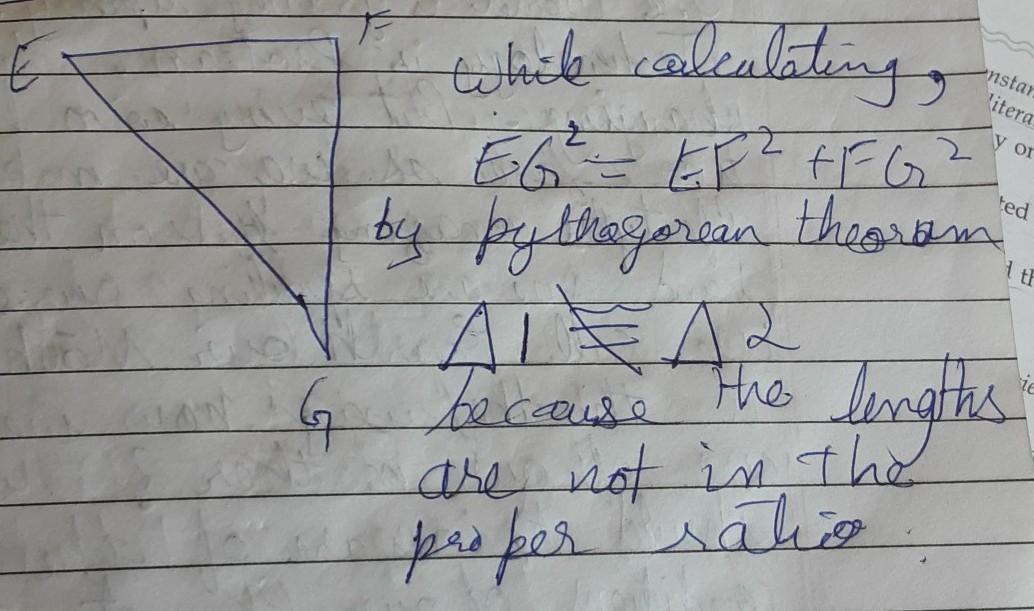 E
F
While calculating,
EG² = EF² + FG²
by pythagorean theoram
Δ1 ≢ Δ2
G
because the lengths
are not in the
proper ratio.
nstan
litera
y or
ted
d th